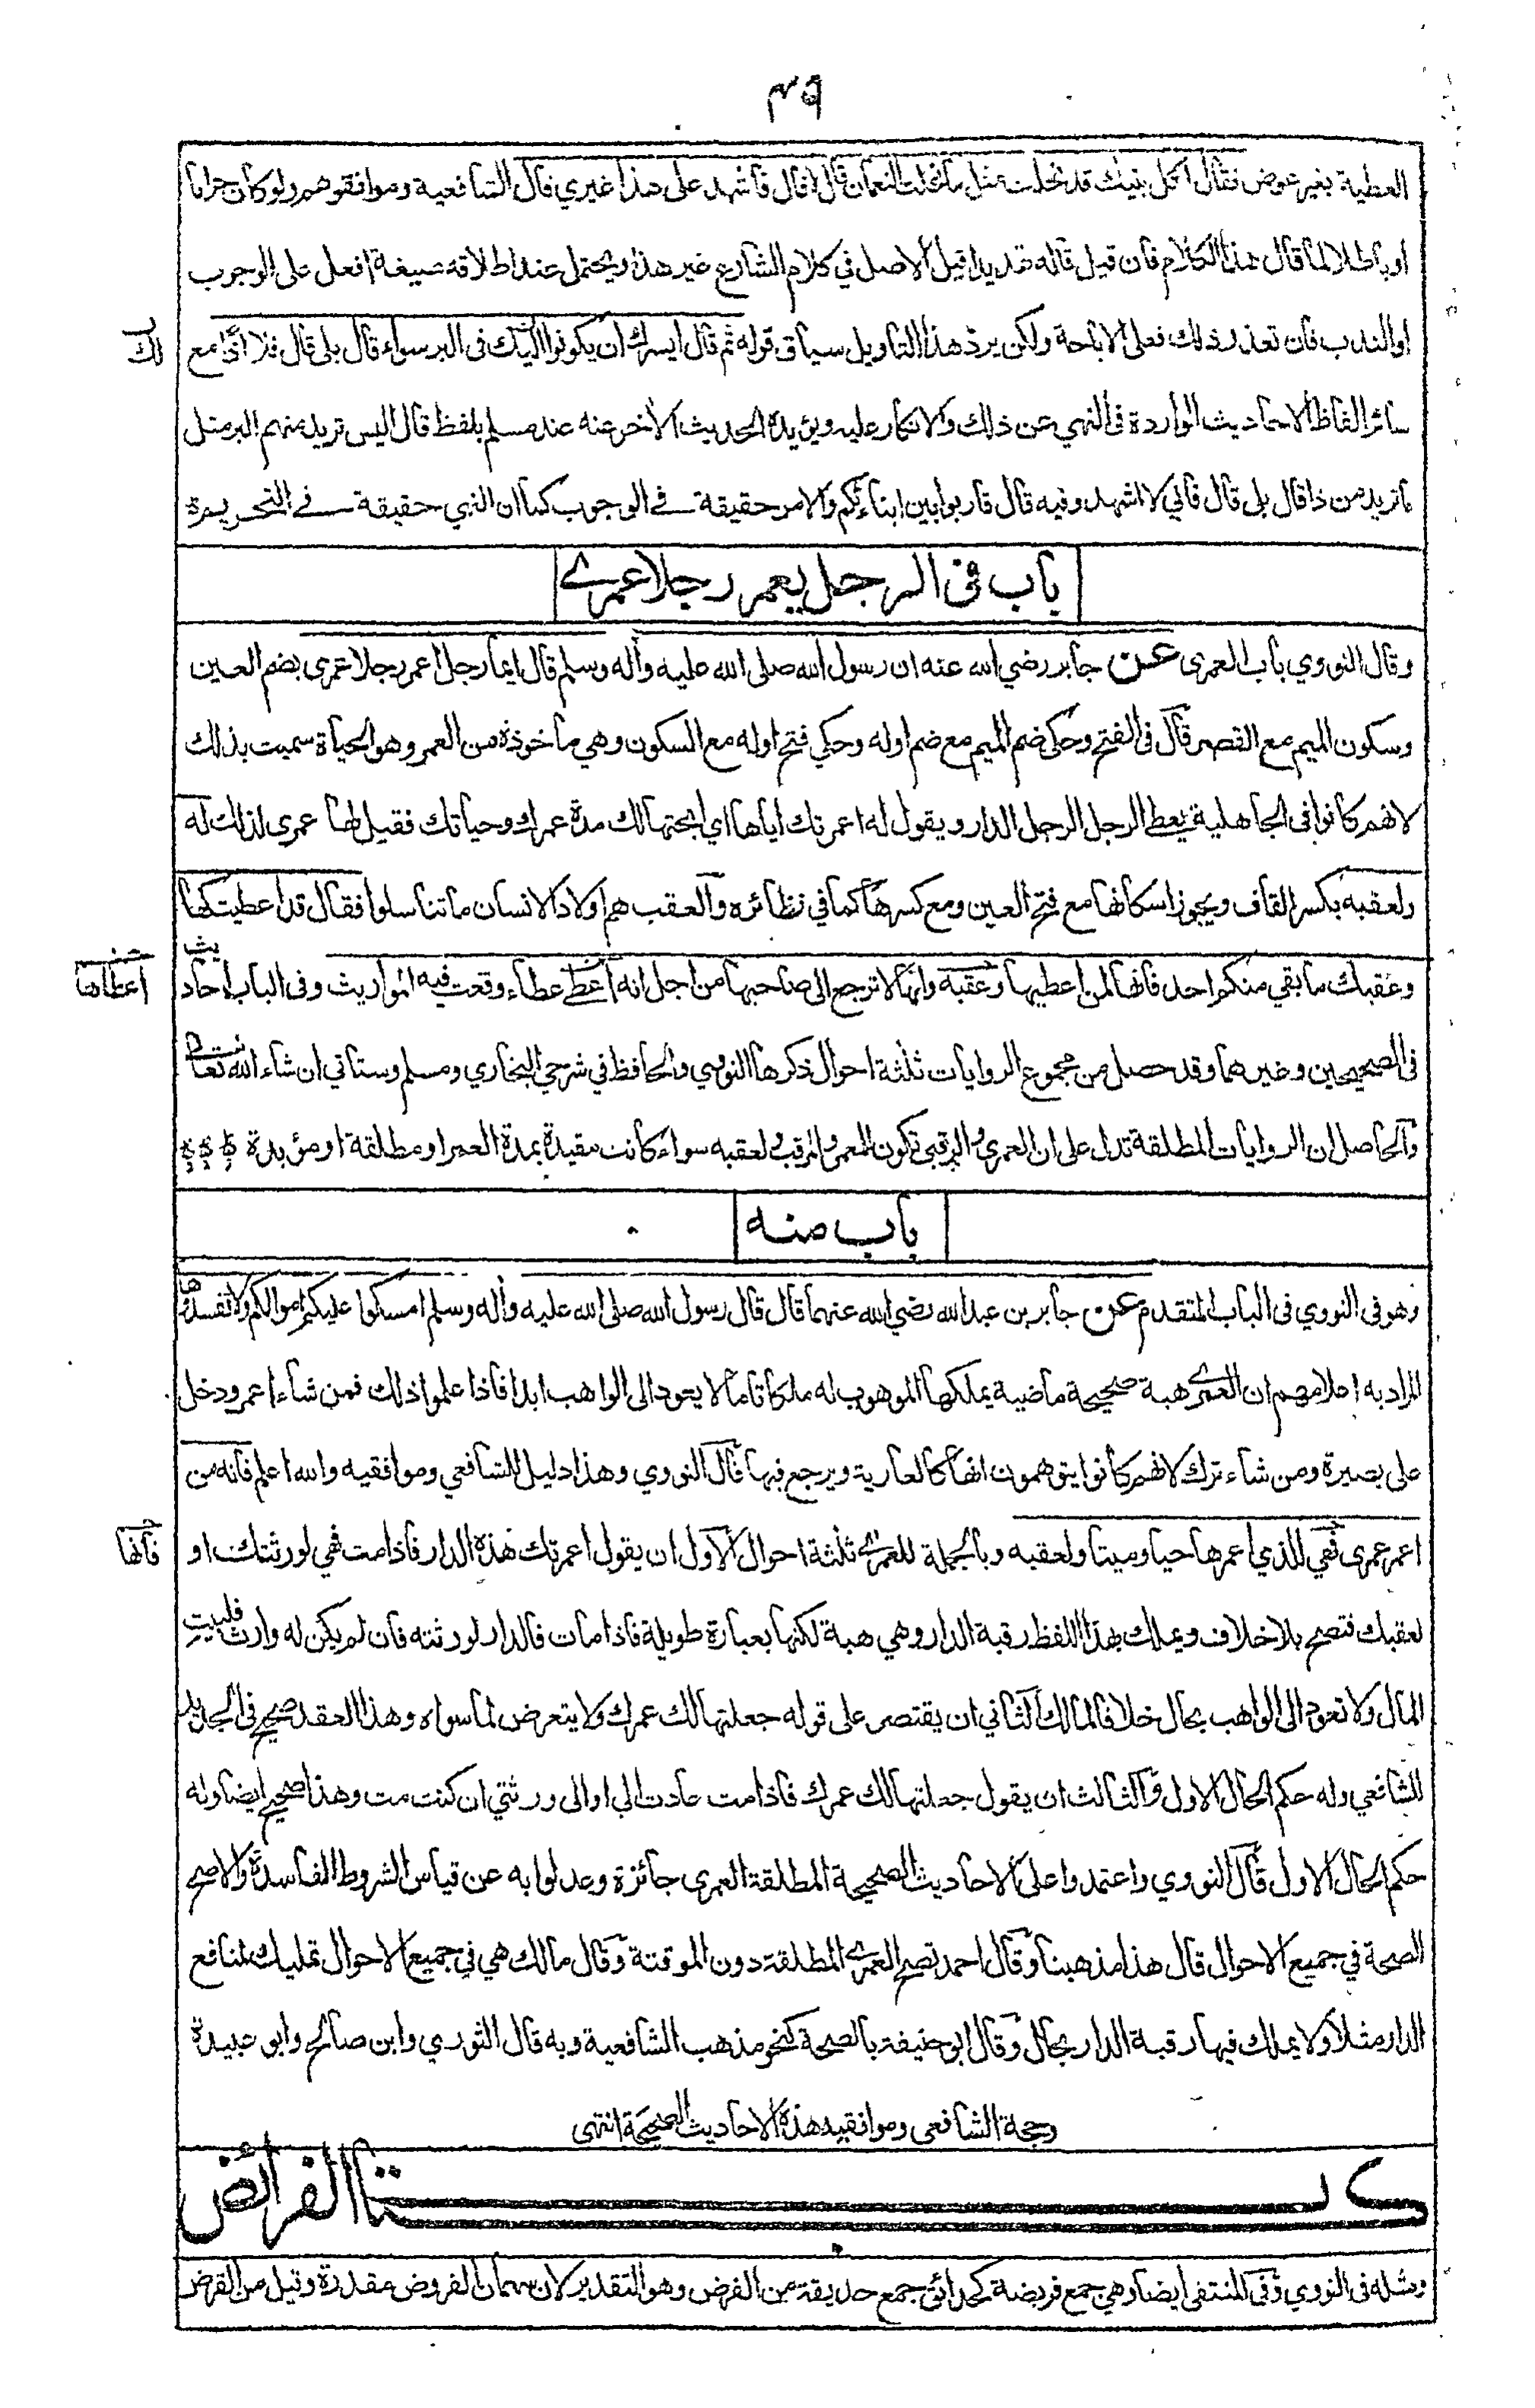 ٤٩
العطية بغير عوض فقال اكل بنيك قد نحلت مثل ما نحلت النعمان قال لا قال فاشهد على هذا غيري قال الشافعية وموافقوهم ولو كان حراما
او باطلا لما قال هذا الكلام فان قيل قاله تهديدا قيل الاصل في كلام الشارع غير هذا ويحتمل عند اطلاقه صيغة افعل على الوجوب
او الندب فان تعذر ذلك فعلى الاباحة ولكن يرد هذا التاويل سياق قوله ثم قال ايسرك ان يكونوا اليك فى البر سواء قال بلى قال فلا اذًا مع
لك
سائر الفاظ الاحاديث الواردة فى النهي عن ذلك والانكار عليه ويؤيده الحديث الاخر عنه عند مسلم بلفظ قال اليس تريد منهم البر مثل
ما تريد من ذا قال بلى قال فاني لا اشهد وفيه قال قاربوا بين ابنائكم والامر حقيقة في الوجوب كما ان النهي حقيقة في التحريم
باب فى الرجل يعمر رجلا عمرے
وقال النووي باب العمرى عن جابر رضي الله عنه ان رسول الله صلى الله عليه وآله وسلم قال ايما رجل اعمر رجلا عمرى بضم العين
وسكون الميم مع القصر قال فى الفتح وحكى ضم الميم مع ضم اوله وحكي فتح اوله مع السكون وهي ماخوذة من العمر وهو الحياة سميت بذلك
لانهم كانوا فى الجاهلية يعطے الرجل الرجل الدار ويقول له اعمرتك اياها اي ابحتها لك مدة عمرك وحياتك فقيل لها عمرى لذلك له
ولعقبه بكسر القاف ويجوز اسكانها مع فتح العين ومع كسرها كما في نظائره والعقب هم اولاد الانسان ما تناسلوا فقال قد اعطيتكها
وعقبك ما بقي منكم احد فانها لمن اعطيها وعقبه وانها لا ترجع الى صاحبها من اجل انه اعطے عطاء وقعت فيه المواريث وفى الباب احاديث
اعطاها
فى الصحيحين وغيرهما وقد حصل من مجموع الروايات ثلثة احوال ذكرها النووي والحافظ في شرحي البخاري ومسلم وستاتي ان شاء الله تعالى
والحاصل ان الروايات المطلقة تدل على ان العمرى والرقبى تكون للمعمر والمرقب ولعقبه سواء كانت مقيدة بمدة العمر او مطلقة او مؤبدة
باب منه
وهو فى النووي فى الباب المتقدم عن جابر بن عبد الله رضي الله عنهما قال قال رسول الله صلى الله عليه وآله وسلم امسكوا عليكم اموالكم ولا تفسدوها
المراد به اعلامهم ان العمرے هبة صحيحة ماضية يملكها الموهوب له ملكا تاما لا يعود الى الواهب ابدا فاذا علموا ذلك فمن شاء اعمر ودخل
على بصيرة ومن شاء ترك لانهم كانوا يتوهمون انها كالعارية ويرجع فيها قال النووي وهذا دليل للشافعي وموافقيه والله اعلم فانه من
اعمر عمرى فهي للذي اعمرها حيا وميتا ولعقبه وبالجملة للعمرے ثلثة احوال الاول ان يقول اعمرتك هذه الدار فاذا مت فهي لورثتك او
فانها
لعقبك فتصح بلا خلاف ويملك بهذا اللفظ رقبة الدار وهي هبة لكنها بعبارة طويلة فاذا مات فالدار لورثته فان لم يكن له وارث فلبيت
المال ولا تعود الى الواهب بحال خلافا لمالك الثاني ان يقتصر على قوله جعلتها لك عمرك ولا يتعرض لما سواه وهذا العقد صحيح فى الجديد
للشافعي وله حكم الحال الاول والثالث ان يقول جعلتها لك عمرك فاذا مت عادت الي او الى ورثتي ان كنت مت وهذا صحيح ايضا وله
حكم الحال الاول قال النووي واعتمدوا على الاحاديث الصحيحة المطلقة العمرى جائزة وعدلوا به عن قياس الشروط الفاسدة والاصح
الصحة في جميع الاحوال قال هذا مذهبنا وقال احمد تصح العمرے المطلقة دون الموقتة وقال مالك هي في جميع الاحوال تمليك لمنافع
الدار مثلا ولا يملك فيها رقبة الدار بحال وقال ابو حنيفة بالصحة كنحو مذهب الشافعية وبه قال الثوري وابن صالح وابو عبيدة
وحجة الشافعي وموافقيه هذه الاحاديث الصحيحة انتهى
كتاب الفرائض
ومثله فى النووي وفى المنتقى ايضا وهي جمع فريضة كحدائق جمع حديقة من الفرض وهو التقدير لان سهمان الفروض مقدرة وقيل من القرض